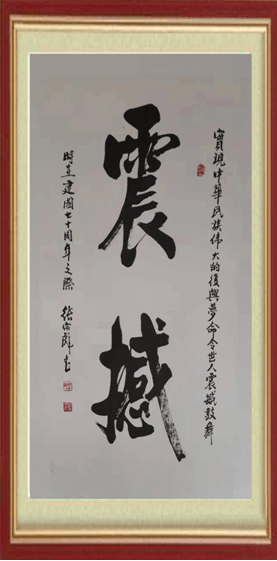 實現中華民族伟大的復興夢命令世人震撼鼓舞
震撼
時在建國七十周年之際 張